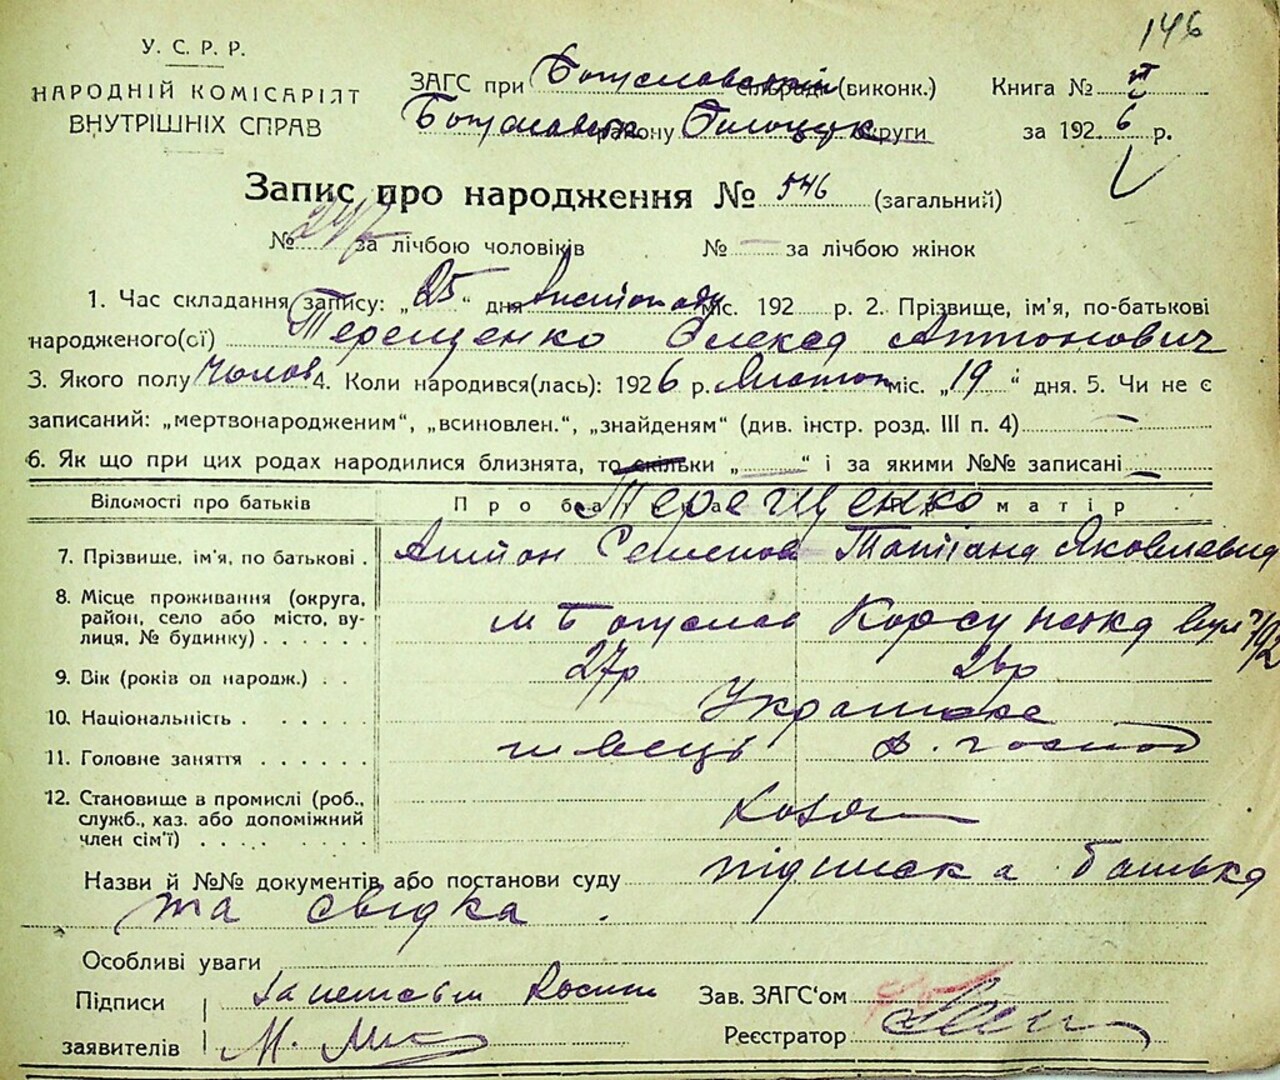 146
У. С. Р. Р.
НАРОДНІЙ КОМІСАРІЯТ
ВНУТРІШНІХ СПРАВ
ЗАГС при Богуславській сільраді (виконк.)
Книга № VI
Богуславськ району Білоцерк округи
за 1926 р.
Запис про народження № 546 (загальний)
№ 297 за лічбою чоловіків № — за лічбою жінок
1. Час складання запису: „25“ дня листопаду міс. 192 р. 2. Прізвище, ім'я, по-батькові
народженого(ої) Терещенко Олексад Антонович
3. Якого полу чолов 4. Коли народився(лась): 1926 р. Листоп міс. „19“ дня. 5. Чи не є
записаний: „мертвонародженим“, „всиновлен.“, „знайденям“ (див. інстр. розд. III п. 4) —
6. Як що при цих родах народилися близнята, то скільки „ “ і за якими №№ записані —
Відомості про батьків
Терещенко
7. Прізвище, ім'я, по батькові . Антон Семенов Татіана Яковлевна
8. Місце проживання (округа,
район, село або місто, ву-
лиця, № будинку) . . . . . м Богуслав Корсунська вул
9. Вік (років од народж.) . . 27р 26р
10. Національність . . . . . . Українске
11. Головне заняття . . . . . . швець д. господ
12. Становище в промислі (роб.,
служб., хаз. або допоміжний
член сім'ї) . . . . . . .
Назви й №№ документів або постанови суду підписка батька
та свідка .
Особливі уваги
Підписи
Зав. ЗАГС'ом
Реєстратор
заявителів